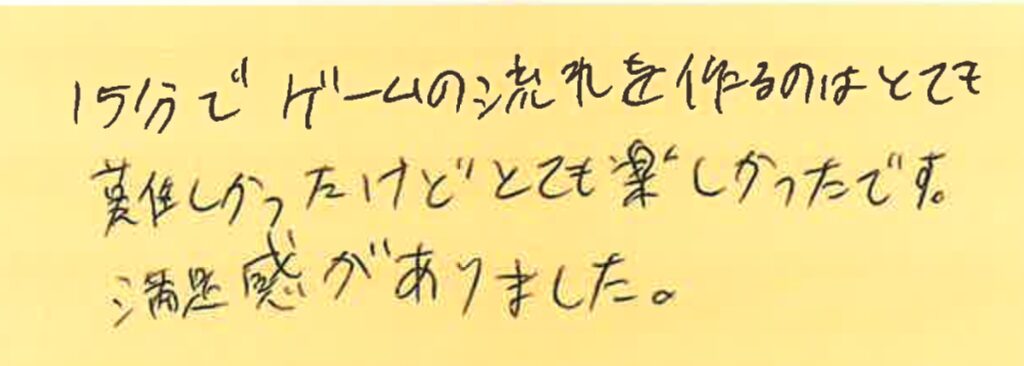 15分でゲームの流れを作るのはとても
難しかったけどとても楽しかったです。
満足感がありました。